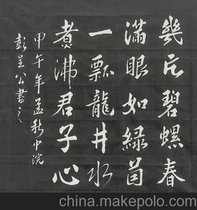 幾片碧螺春
滿眼如綠茵
一瓢龍井水
煮沸君子心
甲午年孟秋中浣
彭呈公書之
www.makepolo.com